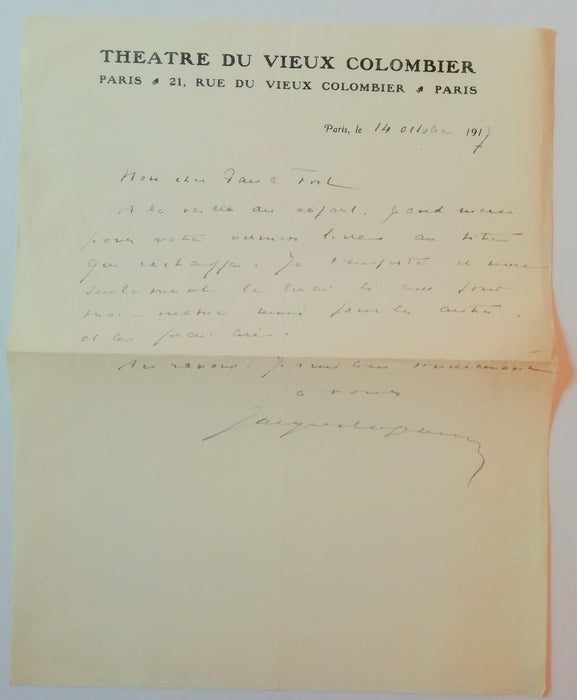 THEATRE DU VIEUX COLOMBIER
PARIS 21, RUE DU VIEUX COLOMBIER PARIS
Paris, le 14 octobre 1917
Mon cher Paul Fort
A la veille du départ, grand merci
pour votre dernier livre au titre
qui réchauffe. Je l'emporte et non
seulement le lirai
moi-même mais pour les autres,
et le ferai lire.
Au revoir. Je suis bien sincèrement
à vous
Jacques Copeau